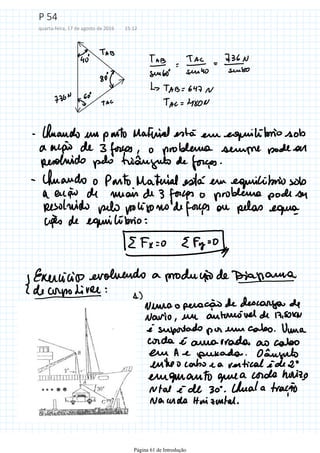 P 54
quarta-feira, 17 de agosto de 2016 15:12
TAB
40°
80°
736N
60°
TAC
TAB/sen60° = TAC/sen40 = 736N/sen80
↳ TAB = 647 N
TAC = 480N
- Quando um ponto Material está em equilíbrio sob
a ação de 3 forças, o problema sempre pode ser
resolvido pelo triângulo de forças.
- Quando o Ponto Material está em equilíbrio sob
a ação de mais de 3 forças o problema pode ser
resolvido pelo polígono de forças ou pelas equa
ções de equilíbrio:
Σ Fx = 0 Σ Fy = 0
Exercício evolvendo a produção de Diagrama
de corpo Livre:
Numa operação de descarga de
Navio, um automóvel de
é suportado por um cabo. Uma
corda é amarrada ao cabo
em A e puxada. O ângulo
entre o cabo e a vertical é de 2°
enquanto que a corda horizo
ntal é de 30°. Qual a tração
Na corda Horizontal.
Página 61 de Introdução